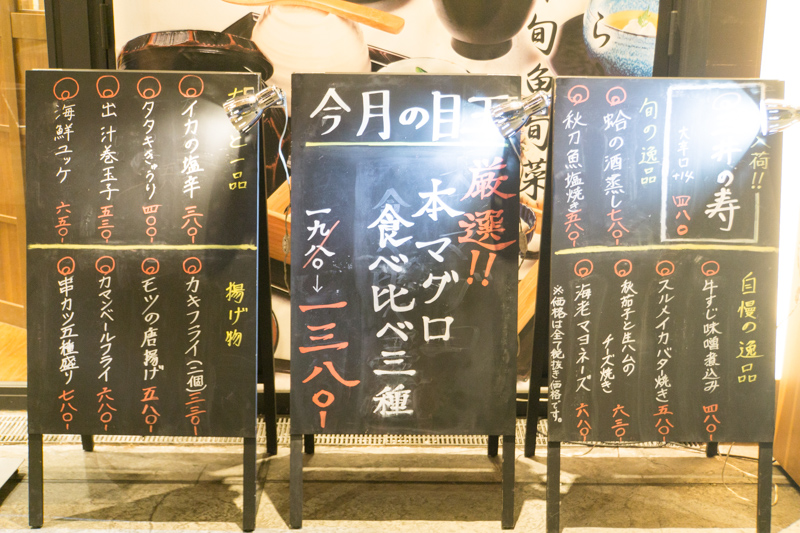 と一品
イカの塩辛 三八〇-
タタキきゅうり 四〇〇-
出汁巻玉子 五三〇-
海鮮ユッケ 六五〇-
揚げ物
カキフライ(二個) 三三〇-
モツの唐揚げ 五八〇-
カマンベールフライ 六八〇-
串カツ五種盛り 七八〇-
今月の目玉
厳選!!
本マグロ
食べ比べ三種
一九八〇→一三八〇-
旬魚旬菜
ら
入荷!!
井の寿
大辛口+14
四八〇
旬の逸品
蛤の酒蒸し 七八〇-
秋刀魚塩焼き 五八〇-
自慢の逸品
牛すじ味噌煮込み 四八〇-
スルメイカバター焼き 五八〇-
秋茄子と生ハムの
チーズ焼き 六三〇-
海老マヨネーズ 六八〇-
※価格は全て税抜き価格です。